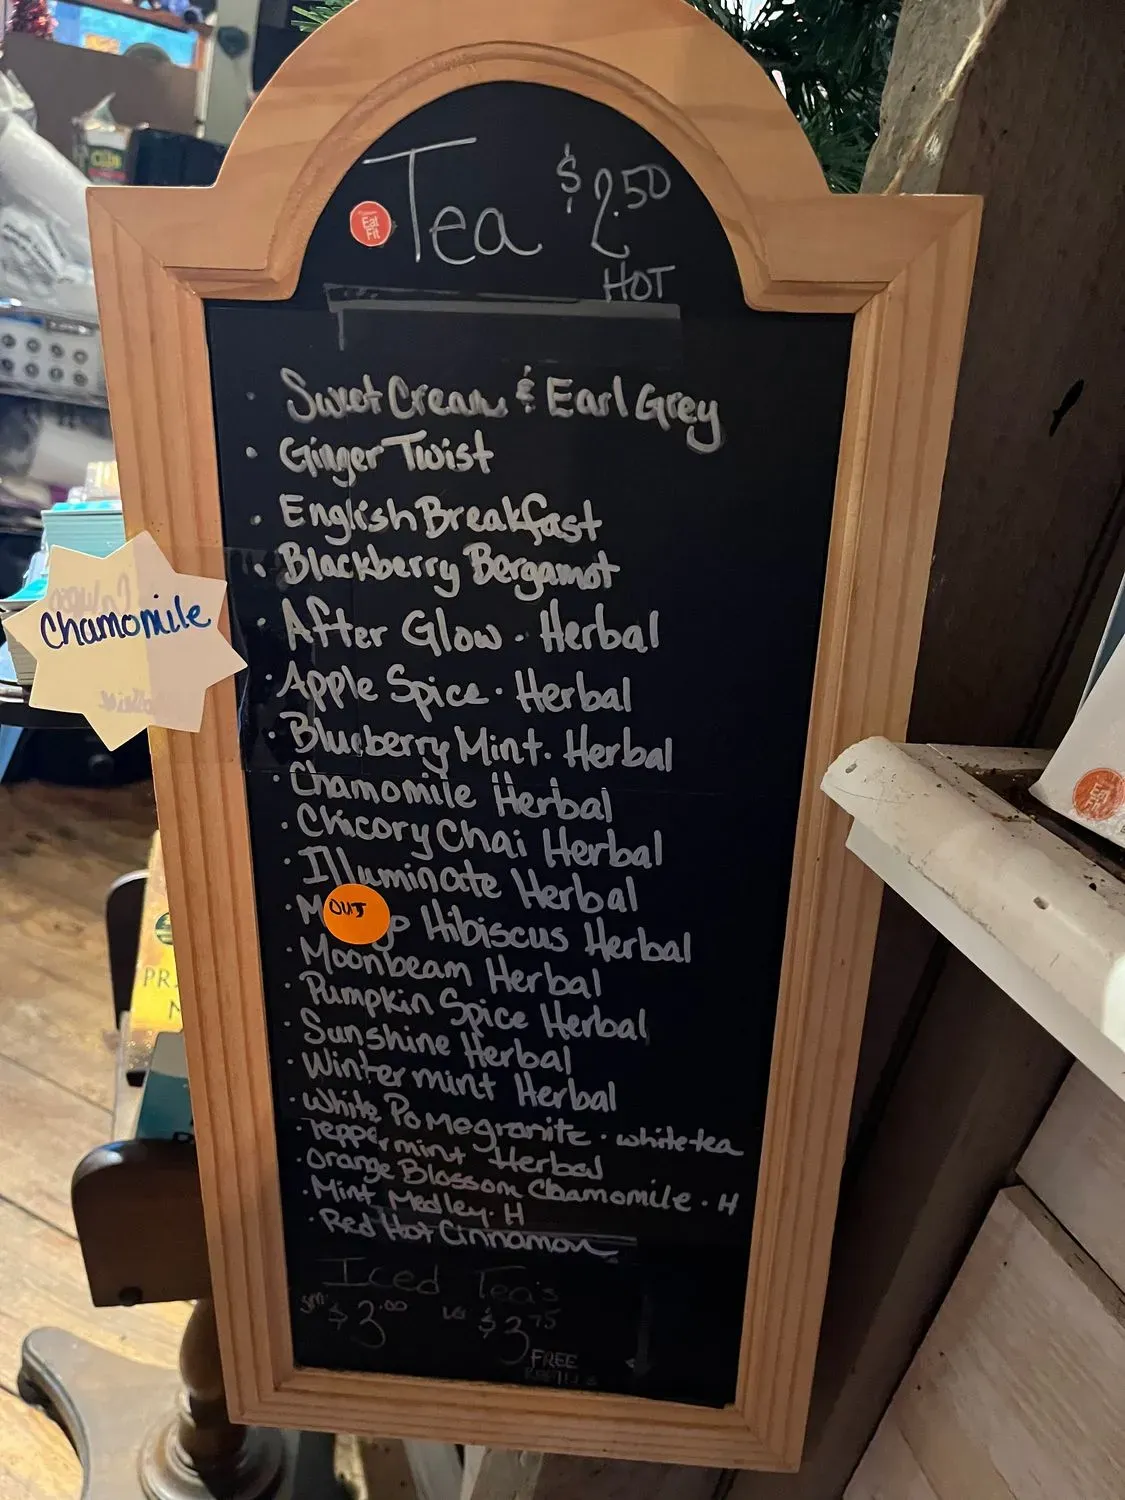 Tea $2.50
Eat Fit
HOT
· Sweet Cream & Earl Grey
· Ginger Twist
· English Breakfast
· Blackberry Bergamot
· After Glow · Herbal
· Apple Spice · Herbal
· Blueberry Mint · Herbal
· Chamomile Herbal
· Chicory Chai Herbal
· Illuminate Herbal
· M OUT go Hibiscus Herbal
· Moonbeam Herbal
· Pumpkin Spice Herbal
· Sunshine Herbal
· Wintermint Herbal
· White Pomegranite · white tea
· Peppermint Herbal
· Orange Blossom Chamomile · H
· Mint Medley · H
· Red Hot Cinnamon
Iced Tea's
sm $3.00 LG $3.75
FREE
Chamomile